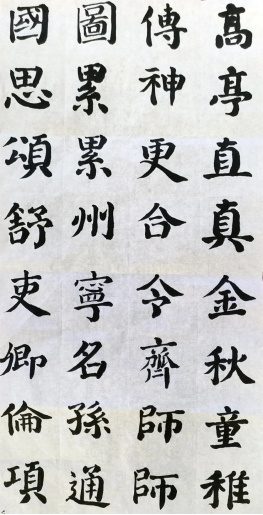 高亭直真金秋童稚
傳神更合令齊師師
圖累累州寧名孫通
國思頌舒吏卿倫項